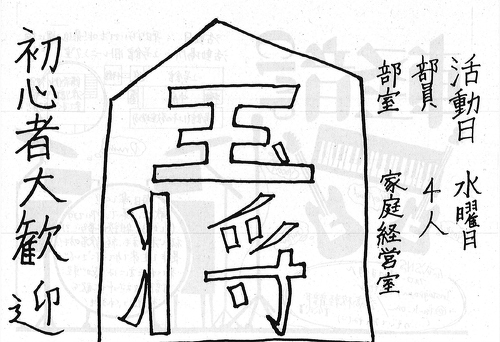 活動日 水曜日
部員 4人
部室 家庭経営室
玉将
初心者大歓迎